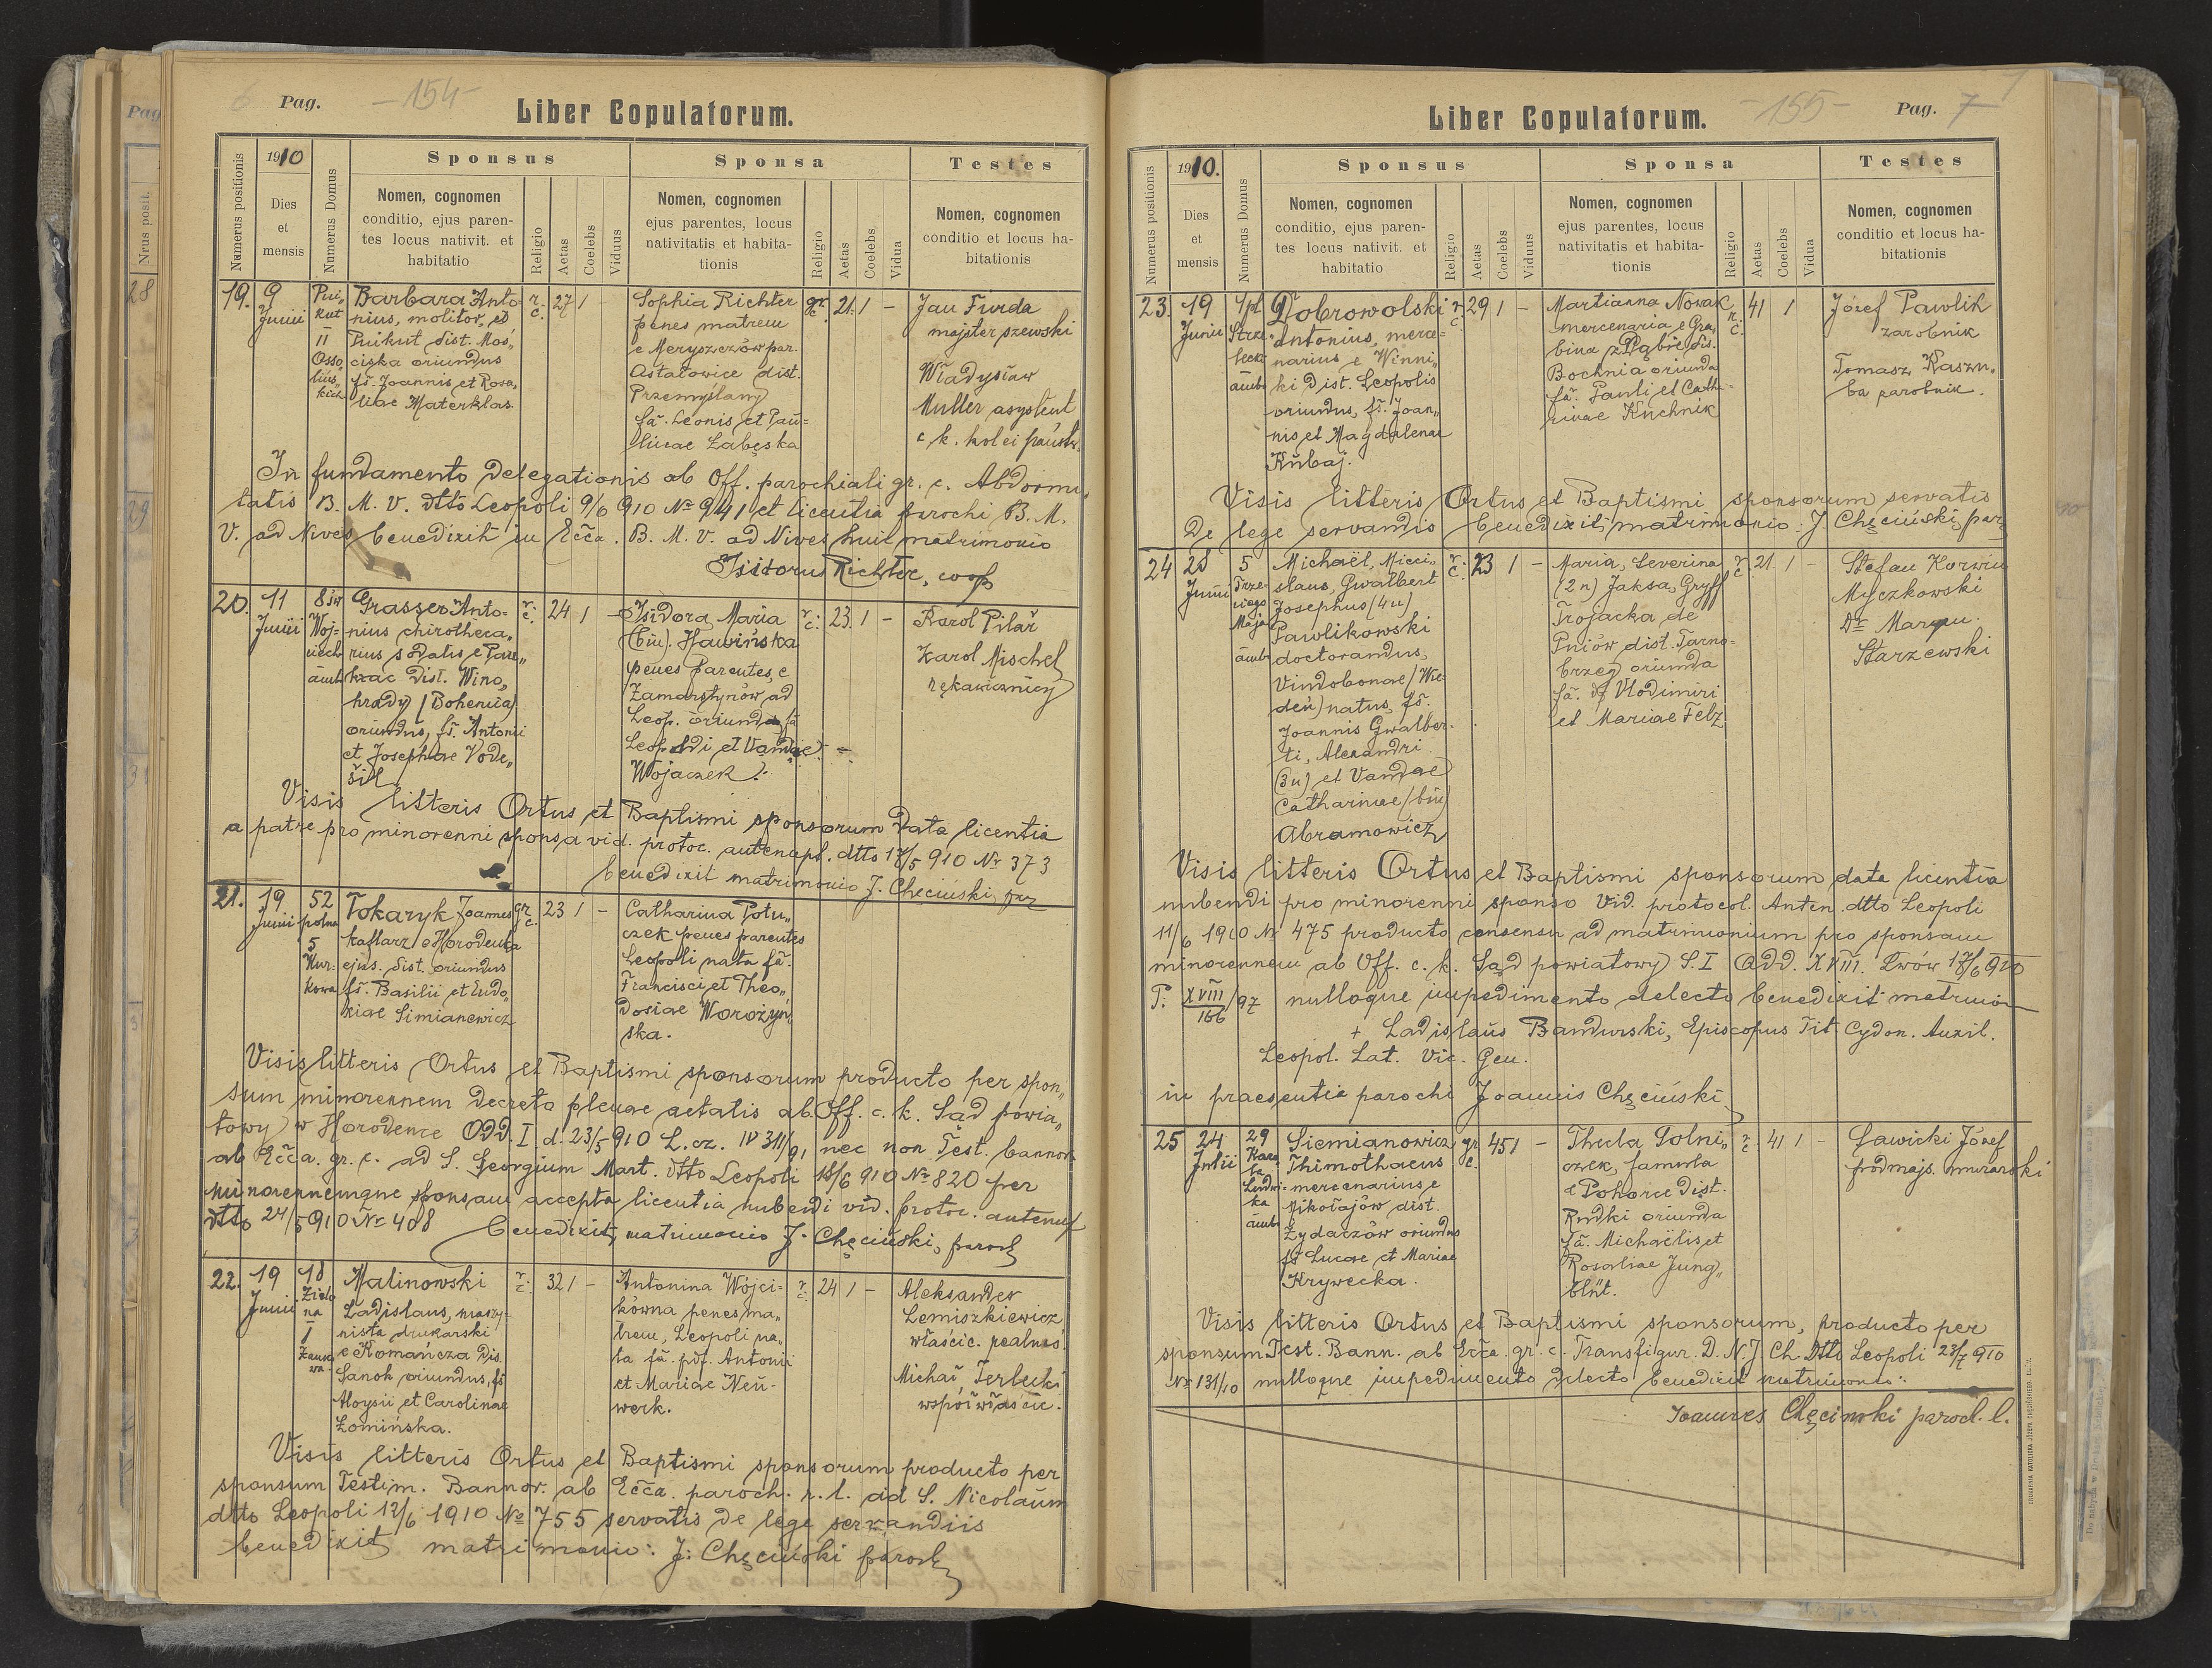 Pag.
-154-
Liber Copulatorum.
Numerus positionis
1910
Dies
et
mensis
Numerus Domus
Sponsus
Nomen, cognomen
conditio, ejus paren-
tes locus nativit. et
habitatio
Religio
Aetas
Coelebs
Viduus
Sponsa
Nomen, cognomen
ejus parentes, locus
nativitatis et habita-
tionis
Religio
Aetas
Coelebs
Vidua
Testes
Nomen, cognomen
conditio et locus ha-
bitationis
19.
9
Junii
Pni„
kut
II
Osso„
liń„
kich
Barbara Anto-
nius, molitor, et
Pnikut dist. Moś„
ciska oriundus
fs. Joannis et Rosa„
liae Materklas.
r.
c.
27
1
-
Sophia Richter
penes matrem
e Meryszczów par.
dist.
Przemyślany
fa. Leonis et Pau=
linae Łabęska
gr.
c.
21.
1
-
Jan Firda
majster szewski
Władysław
Muller asystent
c. k. kolei państw.
In fundamento delegationis ab Off. parochiali gr. c. Abdormi„
tatis B. M. V. dtto Leopoli 9/6 910 № 941 et licentia parochi B. M.
V. ad Nives benedixit in Ecca. B. M. V. ad Nives huic matrimonio
Isidorus Richter, coop
20.
11
Junii
8 św
Woj=
ciech
ambo
Grasser Anto=
nius chirotheca„
rius sodalis e
dist. Wino„
hrady (Bohemia)
oriundus, fs. Antonii
et Josephae Vode„
šil
r.
c.
24
1
-
Isidora Maria
(bin). Hawińska
penes parentes, e
Zamarstynów ad
Leop. oriunda fa
Leopoldi et Vandae
Wojaczek
r.
c.
23.
1
-
Karol Pilař
Karol Mischel
rękawicznicy
Visis litteris Ortus et Baptismi sponsorum data licentia
a patre pro minorenni sponsa vid. protoc. antenupt. dtto 17/5 910 Nr 373
benedixit matrimonio J. Chęciński, par
21.
19
Junii
52
polna
5
Kur-
kowa
Tokaryk Joannes
kaflarz e Horodenka
ejus. dist. oriundus
fs. Basilii et Eudo„
kiae Simianowicz
gr.
c.
23
1
-
Catharina Potu„
czek penes parentes
Leopoli nata fa.
Francisci et Theo„
dosiae Worożyń„
ska.
Visis litteris Ortus et Baptismi sponsorum producto per spon„
sum minorennem decreto plenae aetatis ab Off. c. k. Sąd powia„
towy w Horodence Odd. I d. 23/5 910 L. cz. IV 311/91 nec non Test. bannor
ab Ecca. gr. c. ad S. Georgium Mart. dtto Leopoli 18/6 910 № 820 per
minorennemque sponsam accepta licentia nubendi vid. protoc. antenupt
dtto 24/5 910 Nr 408 benedixit matrimonio J. Chęciński, paroch
22.
19
Junii
18
Zielo
na
1
Malinowski
Ladislaus, maszy-
nista drukarski
e Komańcza dis.
Sanok oriundus, fs
Aloysii et Carolinae
Łomińska.
r.
c.
32
1
-
Antonina Wójci-
kówna penes ma„
trem, Leopoli na„
ta fa. pdf. Antonii
et Mariae Neu-
werk.
r.
c.
24
1
-
Aleksander
Lemiszkiewicz
właścic. realnoś.
Michał Terlecki
współwłaścic.
Visis litteris Ortus et Baptismi sponsorum producto per
sponsum Testim. Bannor. ab Ecca. paroch. r. l. ad S. Nicolaum
dtto Leopoli 12/6 1910 № 755 servatis de lege servandiis
benedixit matrimonio: J. Chęciński paroch
Liber Copulatorum.
-155-
Pag. 7
Numerus positionis
1910.
Dies
et
mensis
Numerus Domus
Sponsus
Nomen, cognomen
conditio, ejus paren-
tes locus nativit. et
habitatio
Religio
Aetas
Coelebs
Viduus
Sponsa
Nomen, cognomen
ejus parentes, locus
nativitatis et habita-
tionis
Religio
Aetas
Coelebs
Vidua
Testes
Nomen, cognomen
conditio et locus ha-
bitationis
23.
19
Junii
4 pl.
Strze-
lecki
ambo
Dobrowolski
Antonius, merce=
narius e Winni„
ki dist. Leopolis
oriundus, fs. Joan„
nis et Magdalenae
Kubaj.
r.
c.
29
1
-
Martianna Nowak
mercenaria e Gra„
bina dis.
Bochnia oriunda
fa. Pauli et Cath-
rinae Kuchnik
r.
c.
41
1
Józef Pawlik
zarobnik
Tomasz Kaszu„
ba parobnik.
Visis litteris Ortus et Baptismi sponsorum servatis
de lege servandis benedixit matrimonio: J. Chęciński, par.
24
28
Junii
5
Trze-
ciego
Maja
ambo
Michaël, Mieci„
slaus, Gwalbert
Josephus (4n)
Pawlikowski
doctorandus,
Vindobonae (Wie-
deń) natus, fs.
Joannis Gwalber-
ti, Alexandri
(3n) et Vandae
Catharinae (bin)
Abramowicz
r.
c.
23
1
-
Maria, Severina
(2n) Jaksa, Gryff
Trojacka de
Pniów dist. Tarno-
brzeg oriunda
fa. Vlodimiri
et Mariae Felz
r.
c.
21.
1
-
Stefan Korwin
Myczkowski
Dr. Maryan
Starzewski
Visis litteris Ortus et Baptismi sponsorum data licentia
nubendi pro minorenni sponso Vid. protocol. Anten. dtto Leopoli
11/6 1910 № 475 producto consensu ad matrimonium pro sponsam
minorennem ab Off. c. k. Sąd powiatowy S. I Odd. XVIII. Lwów 17/6 910
P. XVIII/166/97 nulloque impedimento delecto benedixit matrimon
+ Ladislaus Bandurski, Episcopus Tit. Cydon. Auxil.
Leopol. Lat. Vic. Gen.
in praesentia parochi Joannis Chęciński
25
24
Julii
29
Karo
la
Ludwi-
ka
ambo
Siemianowicz
Thimothaeus
mercenarius, e
Mikołajów dist.
Żydaczów oriundus
fs Lucae et Mariae
Krywecka.
gr.
c.
45
1
-
Thecla Solni„
czek, famula
e Pohorce dist.
Rudki oriunda
fa. Michaëlis et
Rosaliae Jung„
blut.
r.
c.
41
1
-
Sawicki Józef
podmajs. murarski
Visis litteris Ortus et Baptismi sponsorum, producto per
sponsum Test. Bann. ab Ecca. gr. c. Transfigur. D. N. J. Ch. dtto Leopoli 23/7 910
№ 131/10 nulloque impedimento delecto benedixit matrimonio:
Joannes Chęciński paroch. l.
Nrus posit.
28
29